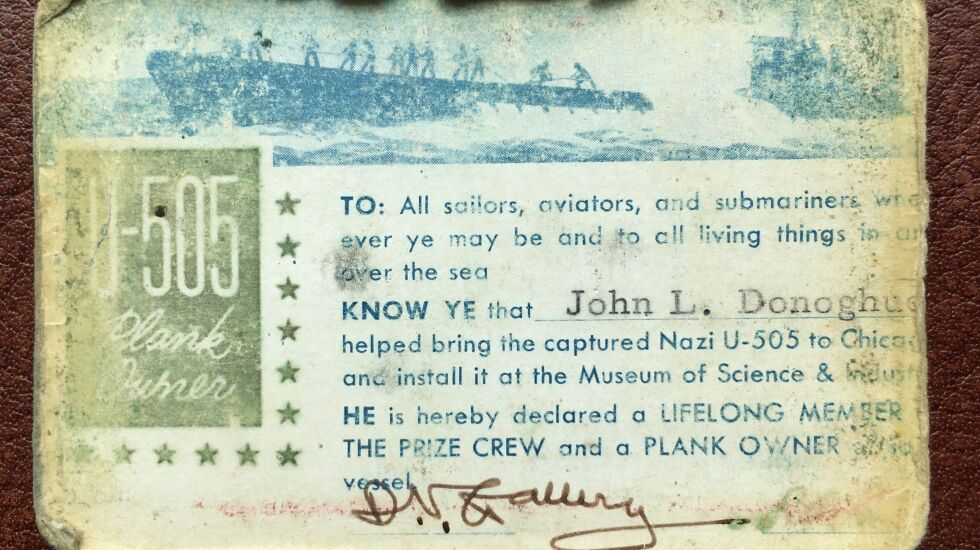 U-505
Plank
Owner
TO: All sailors, aviators, and submariners
ever ye may be and to all living things in
over the sea
KNOW YE that John L. Donoghue
helped bring the captured Nazi U-505 to Chicago
and install it at the Museum of Science & Industry
HE is hereby declared a LIFELONG MEMBER
THE PRIZE CREW and a PLANK OWNER
vessel
D.V. Gallery